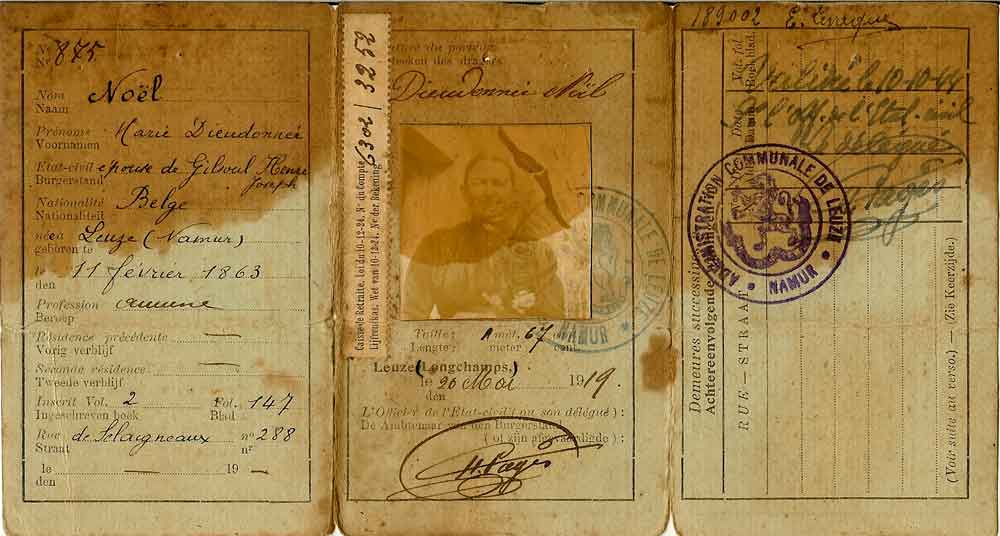 Nº 875
Nr
Nom Noël
Naam
Prénoms Marie Dieudonnée
Voornamen
Etat-civil épouse de Gilsoul Henri
Burgerstand Joseph
Nationalité Belge
Nationaliteit
née à Leuze (Namur)
geboren te
le 11 février 1863
den
Profession aucune
Beroep
Résidence précédente —
Vorig verblijf
Seconde résidence —
Tweede verblijf
Inscrit Vol. 2 Fol. 147
Ingeschreven boek Blad
Rue de Selaigneaux nº 288
Straat nr
le — 19 —
den
Caisse de Retraite. Loi du 10-12-24. Nº du Compte
Lijfrentkas. Wet van 10-12-24. Nr der Rekening
6302 / 3252
du porteur
teeken des dragers
Dieudonnée Noël
COMMUNALE DE LEUZE
NAMUR
Taille: 1 mèt. 67 cent.
Lengte: meter cent.
Leuze (Longchamps.)
le 20 Mai 1919.
den
L'Officier de l'Etat-civil (ou son délégué):
De Ambtenaar van den Burgerstand
(of zijn afgevaardigde):
H. Pagès
189002
Vol. fol.
Boek blad.
Délivré le 10-10-44
l'off. de l'Etat-civil
Le délégué
Pagès
ADMINISTRATION COMMUNALE DE LEUZE
NAMUR
Demeures successives
Achtereenvolgende
RUE — STRAAT
(Voir suite au verso.) — (Zie Keerzijde.)